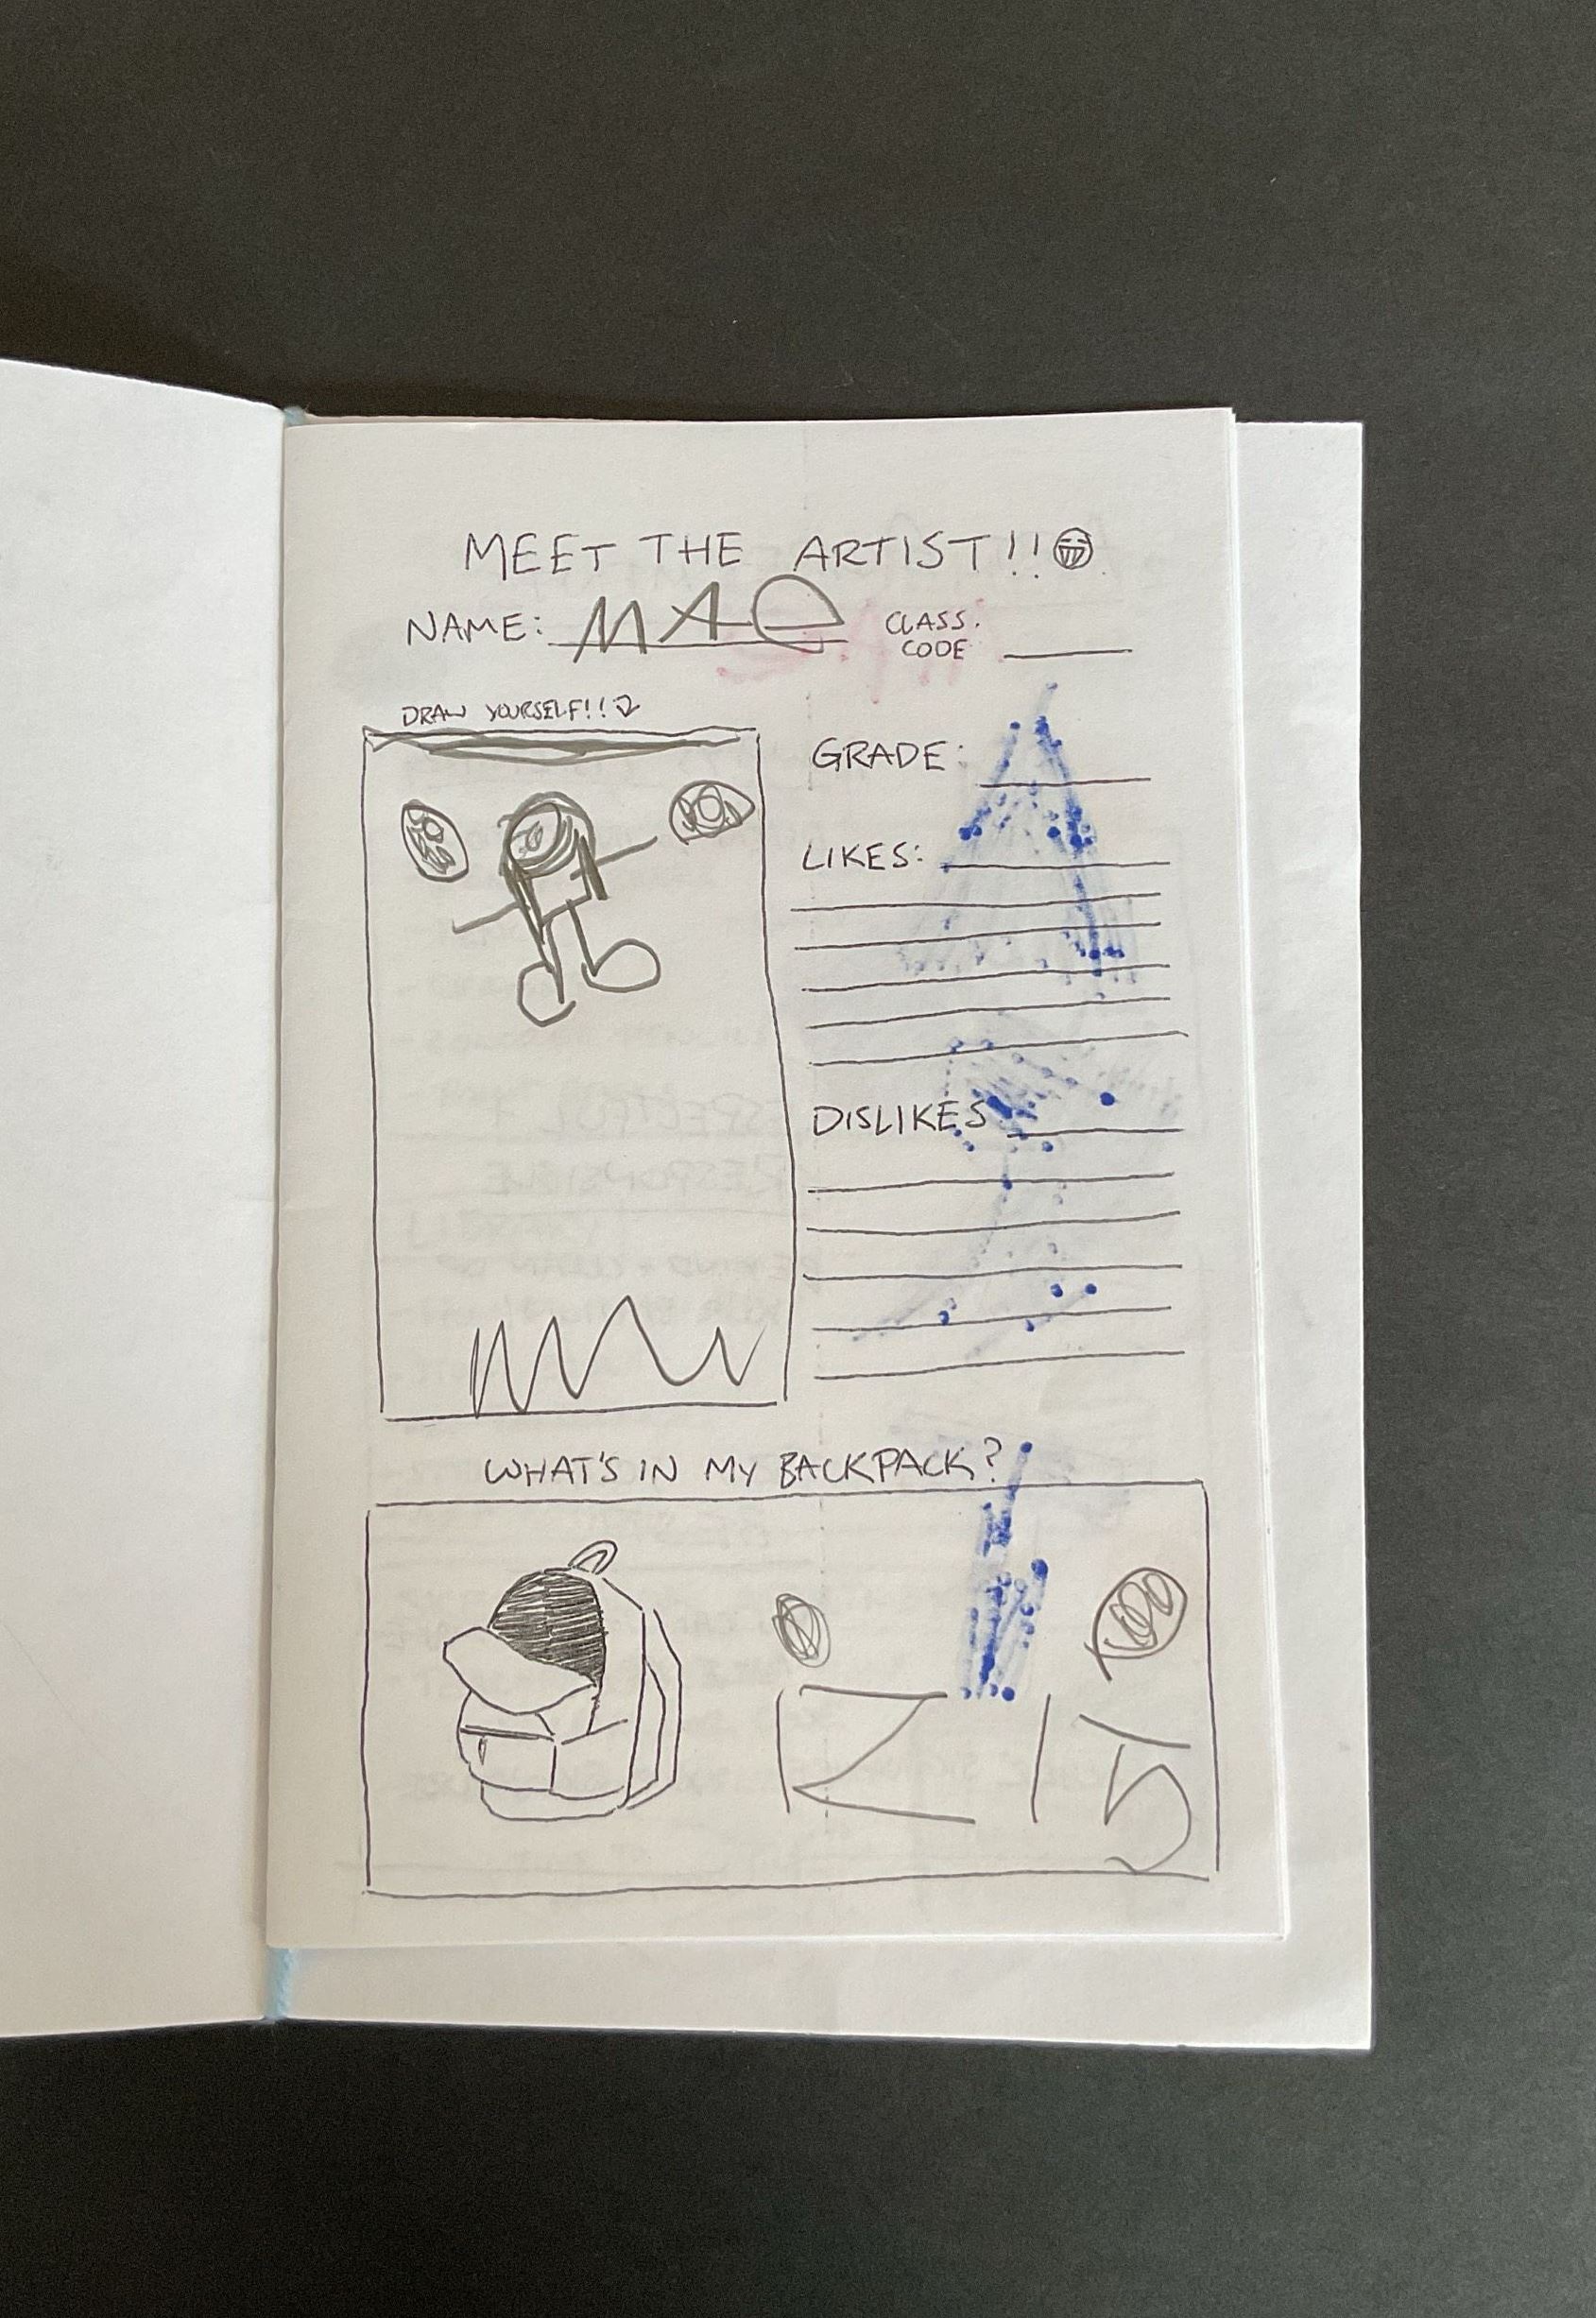 MEET THE ARTIST!!
NAME: MAe
CLASS.
CODE
DRAW YOURSELF!!
GRADE:
LIKES:
DISLIKES
WHAT'S IN MY BACKPACK?